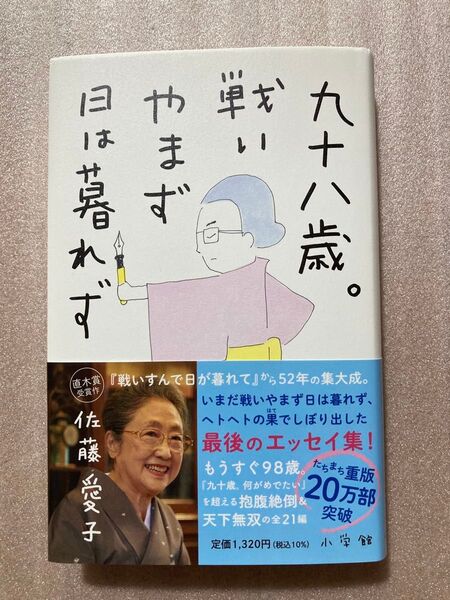 九十八歳。
戦い
やまず
日は暮れず
直木賞
受賞作
『戦いすんで日が暮れて』から52年の集大成。
佐藤愛子
いまだ戦いやまず日は暮れず、
ヘトヘトの果てでしぼり出した
はて
最後のエッセイ集!
もうすぐ98歳。
『九十歳。何がめでたい』
を超える抱腹絶倒&
天下無双の全21編
たちまち重版
20万部
突破
定価1,320円(税込10%)
小学館